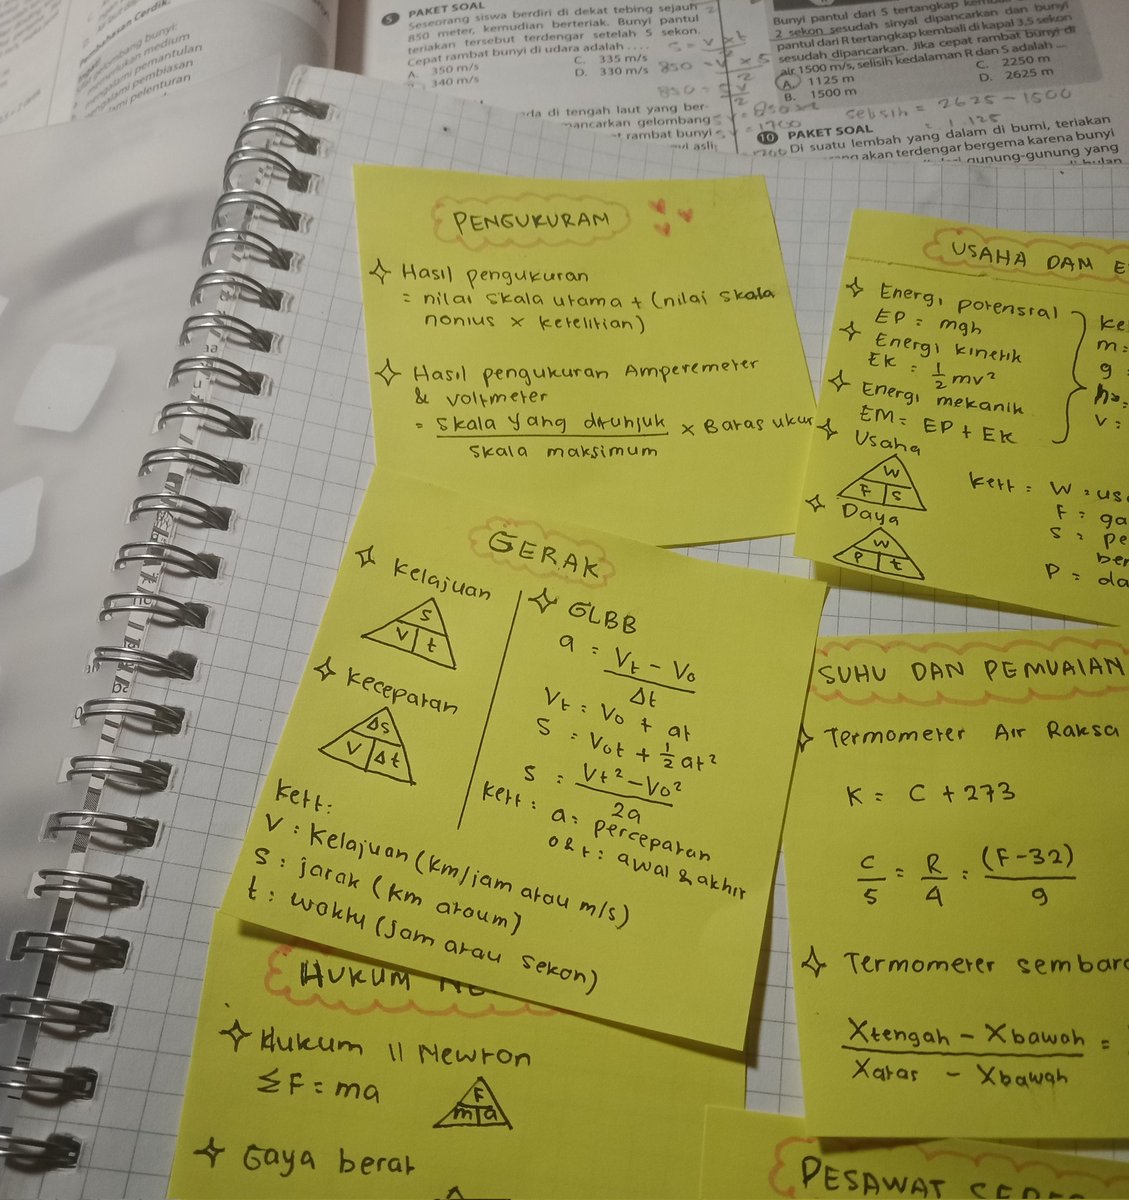 Pembahasan Cerdik
5 PAKET SOAL
Seseorang siswa berdiri di dekat tebing sejauh
850 meter, kemudian berteriak. Bunyi pantul
teriakan tersebut terdengar setelah 5 sekon.
Cepat rambat bunyi di udara adalah ....
A. 350 m/s
C. 335 m/s
340 m/s
D. 330 m/s
da di tengah laut yang ber-
mancarkan gelombang
rambat bunyi
Bunyi pantul dari S tertangkap
2 sekon sesudah sinyal dipancarkan dan bunyi
pantul dari R tertangkap kembali di kapal 3,5 sekon
sesudah dipancarkan. Jika cepat rambat bunyi di
air 1500 m/s, selisih kedalaman R dan S adalah ...
A. 1125 m
C. 2250 m
B. 1500 m
D. 2625 m
selisih = 2625 - 1500
= 1.125
10 PAKET SOAL
Di suatu lembah yang dalam di bumi, teriakan
akan terdengar bergema karena bunyi
gunung-gunung yang
PENGUKURAM
Hasil pengukuran
= nilai skala utama + (nilai skala
nonius x ketelitian)
Hasil pengukuran Amperemeter
& voltmeter
= skala yang ditunjuk / skala maksimum x Batas ukur
USAHA DAM E
Energi potensial
EP = mgh
Energi kinetik
EK = 1/2 mv²
Energi mekanik
EM = EP + EK
ke
m =
g =
h =
v =
Usaha
W
F S
Daya
W
P t
Kett = W = us
F = ga
S = pe
ber
P = da
GERAK
Kelajuan
S
V t
Kecepatan
Δs
V Δt
GLBB
a = Vt - Vo / Δt
Vt = Vo + at
S = Vot + 1/2 at²
S = Vt² - Vo² / 2a
kett : a = percepatan
o & t : awal & akhir
kett :
V : Kelajuan (km/jam atau m/s)
S : jarak (km ataum)
t : waktu (jam atau sekon)
SUHU DAN PEMUAIAN
Termometer Air Raksa
K = C + 273
C/5 = R/4 = (F-32)/9
Termometer sembar
Xtengah - Xbawah / Xatas - Xbawah =
HUKUM
Hukum II Newton
ΣF = ma
F
m a
Gaya berat
PESAWAT SEDER